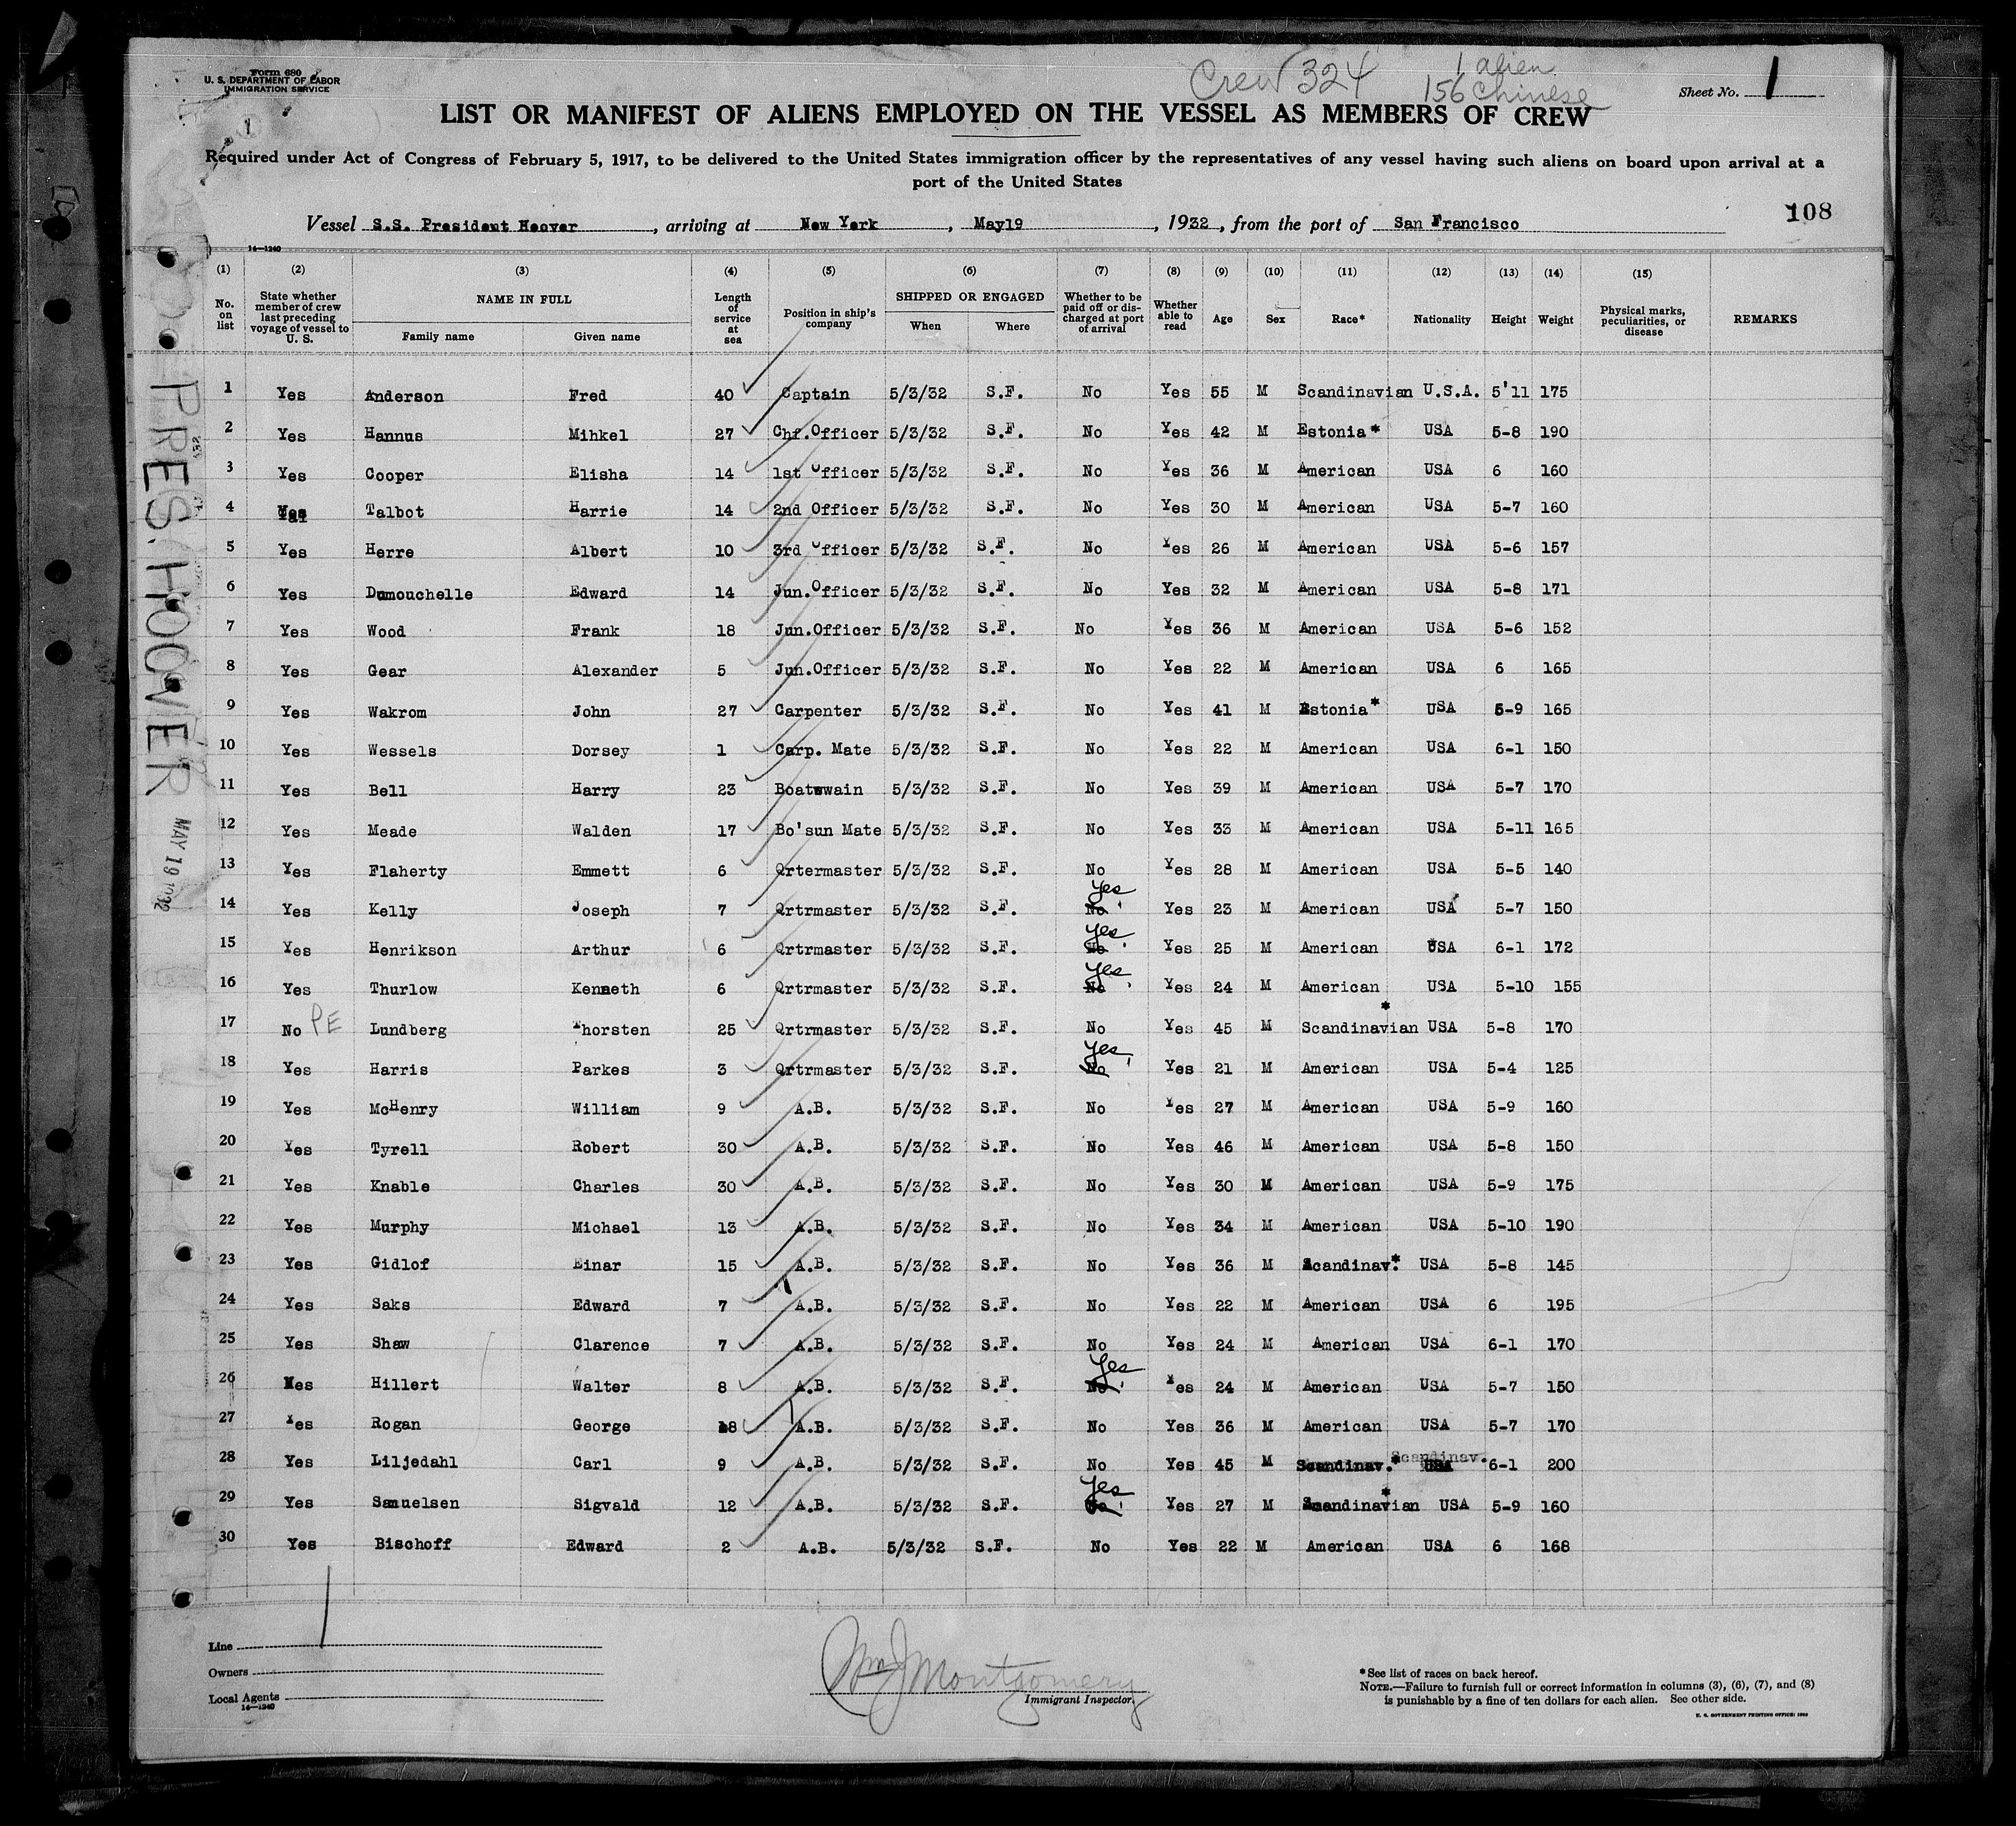 Form 680
U. S. DEPARTMENT OF LABOR
IMMIGRATION SERVICE
Crew 324
1 alien
156 Chinese
Sheet No. 1
LIST OR MANIFEST OF ALIENS EMPLOYED ON THE VESSEL AS MEMBERS OF CREW
Required under Act of Congress of February 5, 1917, to be delivered to the United States immigration officer by the representatives of any vessel having such aliens on board upon arrival at a
port of the United States
108
Vessel S.S. President Hoover, arriving at New York, May19, 1932, from the port of San Francisco
14—1240
(1) (2) (3) (4) (5) (6) (7) (8) (9) (10) (11) (12) (13) (14) (15)
No. on list | State whether member of crew last preceding voyage of vessel to U. S. | NAME IN FULL Family name Given name | Length of service at sea | Position in ship's company | SHIPPED OR ENGAGED When Where | Whether to be paid off or discharged at port of arrival | Whether able to read | Age | Sex | Race* | Nationality | Height | Weight | Physical marks, peculiarities, or disease | REMARKS
1 Yes Anderson Fred 40 Captain 5/3/32 S.F. No Yes 55 M Scandinavian U.S.A. 5'11 175
2 Yes Hannus Mihkel 27 Chf.Officer 5/3/32 S.F. No Yes 42 M Estonia* USA 5-8 190
3 Yes Cooper Elisha 14 1st Officer 5/3/32 S.F. No Yes 36 M American USA 6 160
4 Yes Talbot Harrie 14 2nd Officer 5/3/32 S.F. No Yes 30 M American USA 5-7 160
5 Yes Herre Albert 10 3rd Officer 5/3/32 S.F. No Yes 26 M American USA 5-6 157
6 Yes Dumouchelle Edward 14 Jun.Officer 5/3/32 S.F. No Yes 32 M American USA 5-8 171
7 Yes Wood Frank 18 Jun.Officer 5/3/32 S.F. No Yes 36 M American USA 5-6 152
8 Yes Gear Alexander 5 Jun.Officer 5/3/32 S.F. No Yes 22 M American USA 6 165
9 Yes Wakrom John 27 Carpenter 5/3/32 S.F. No Yes 41 M Estonia* USA 5-9 165
10 Yes Wessels Dorsey 1 Carp. Mate 5/3/32 S.F. No Yes 22 M American USA 6-1 150
11 Yes Bell Harry 23 Boatswain 5/3/32 S.F. No Yes 39 M American USA 5-7 170
12 Yes Meade Walden 17 Bo'sun Mate 5/3/32 S.F. No Yes 33 M American USA 5-11 165
13 Yes Flaherty Emmett 6 Qrtermaster 5/3/32 S.F. No Yes 28 M American USA 5-5 140
14 Yes Kelly Joseph 7 Qrtrmaster 5/3/32 S.F. No Yes Yes 23 M American USA 5-7 150
15 Yes Henrikson Arthur 6 Qrtrmaster 5/3/32 S.F. No Yes Yes 25 M American USA 6-1 172
16 Yes Thurlow Kenneth 6 Qrtrmaster 5/3/32 S.F. No Yes Yes 24 M American USA 5-10 155
17 No PE Lundberg Thorsten 25 Qrtrmaster 5/3/32 S.F. No Yes 45 M Scandinavian* USA 5-8 170
18 Yes Harris Parkes 3 Qrtrmaster 5/3/32 S.F. No Yes Yes 21 M American USA 5-4 125
19 Yes McHenry William 9 A.B. 5/3/32 S.F. No Yes 27 M American USA 5-9 160
20 Yes Tyrell Robert 30 A.B. 5/3/32 S.F. No Yes 46 M American USA 5-8 150
21 Yes Knable Charles 30 A.B. 5/3/32 S.F. No Yes 30 M American USA 5-9 175
22 Yes Murphy Michael 13 A.B. 5/3/32 S.F. No Yes 34 M American USA 5-10 190
23 Yes Gidlof Einar 15 A.B. 5/3/32 S.F. No Yes 36 M Scandinav.* USA 5-8 145
24 Yes Saks Edward 7 A.B. 5/3/32 S.F. No Yes 22 M American USA 6 195
25 Yes Shaw Clarence 7 A.B. 5/3/32 S.F. No Yes 24 M American USA 6-1 170
26 Yes Hillert Walter 8 A.B. 5/3/32 S.F. No Yes Yes 24 M American USA 5-7 150
27 Yes Rogan George 18 A.B. 5/3/32 S.F. No Yes 36 M American USA 5-7 170
28 Yes Liljedahl Carl 9 A.B. 5/3/32 S.F. No Yes 45 M Scandinav.* USA Scandinav. 6-1 200
29 Yes Samuelsen Sigvald 12 A.B. 5/3/32 S.F. No Yes Yes 27 M Scandinavian* USA 5-9 160
30 Yes Bischoff Edward 2 A.B. 5/3/32 S.F. No Yes 22 M American USA 6 168
PRES. HOOVER
MAY 19 1932
Line
Owners
Local Agents
14—1240
Wm J Montgomery
Immigrant Inspector.
*See list of races on back hereof.
NOTE.—Failure to furnish full or correct information in columns (3), (6), (7), and (8)
is punishable by a fine of ten dollars for each alien. See other side.